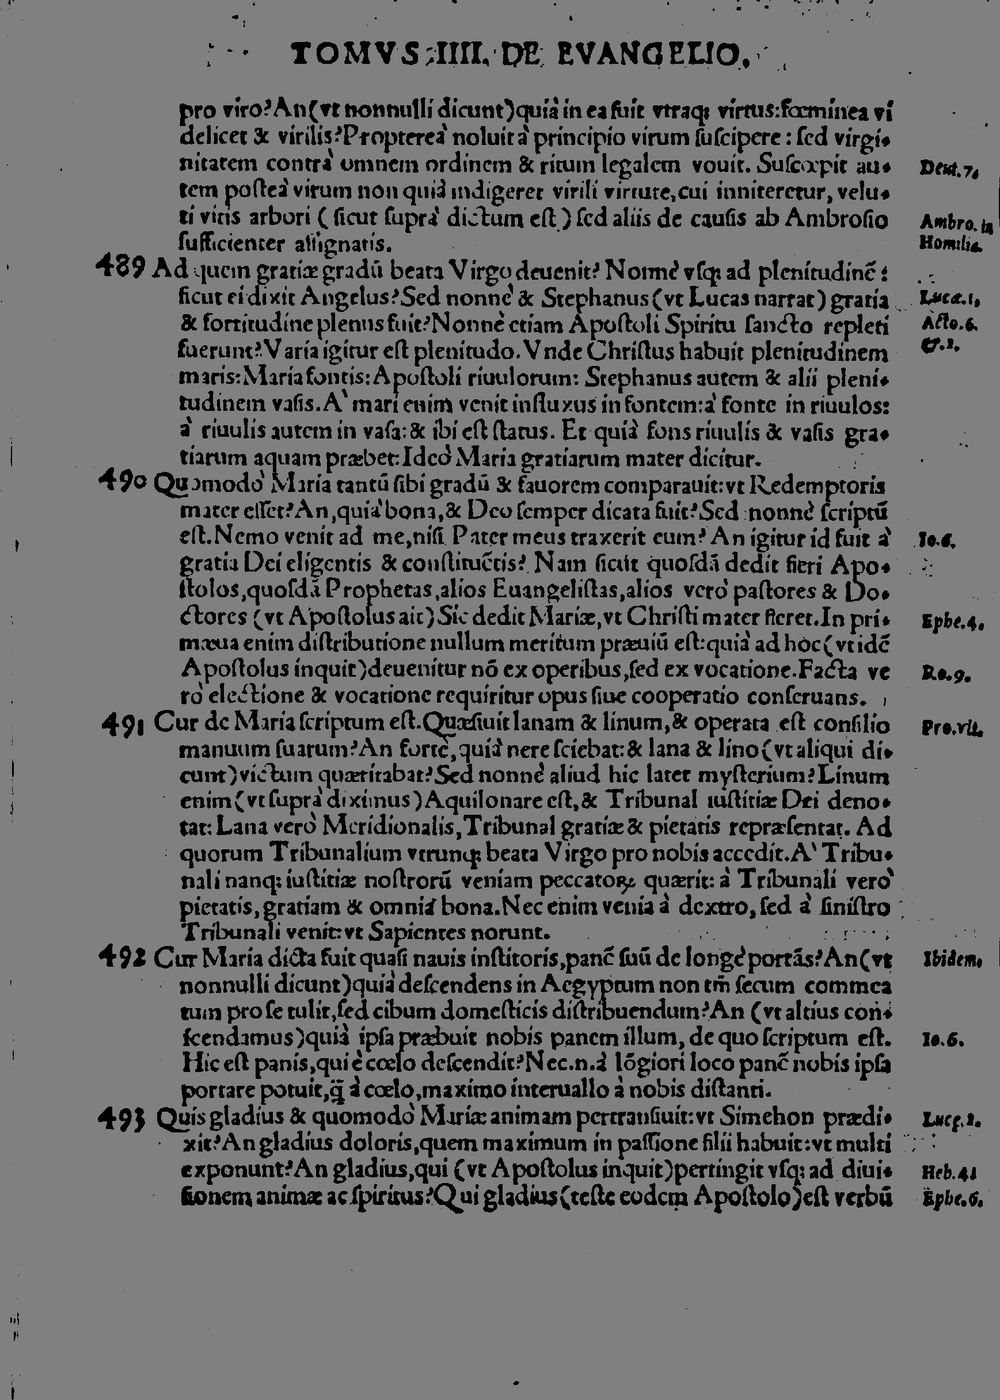 TOMVS IIII. DE EVANGELIO.
pro viro? An (vt nonnulli dicunt) quià in ea fuit vtraqꝫ virtus: fœminea vi
delicet & virilis? Propterea noluit à principio virum suscipere: sed virgi-
nitatem contrà omnem ordinem & ritum legalem vouit. Suscœpit au- Deut. 7.
tem posteà virum non quià indigeret virili virtute, cui inniteretur, velu-
ti vitis arbori (sicut suprà dictum est) sed aliis de causis ab Ambrosio Ambro. in
sufficienter assignatis. Homilia.
489 Ad quem gratiæ gradū beata Virgo deuenit? Nonnè vsqꝫ ad plenitudinē:
sicut ei dixit Angelus? Sed nonnè & Stephanus (vt Lucas narrat) gratia Lucæ. 1.
& fortitudine plenus fuit? Nonnè etiam Apostoli Spiritu sancto repleti Acto. 6.
fuerunt? Varia igitur est plenitudo. Vnde Christus habuit plenitudinem &. 2.
maris: Maria fontis: Apostoli riuulorum: Stephanus autem & alii pleni-
tudinem vasis. A' mari enim venit influxus in fontem: à fonte in riuulos:
à riuulis autem in vasa: & ibi est status. Et quià fons riuulis & vasis gra-
tiarum aquam præbet: Ideò Maria gratiarum mater dicitur.
490 Quomodo Maria tantū sibi gradū & fauorem comparauit: vt Redemptoris
mater esset? An, quià bona, & Deo semper dicata fuit? Sed nonnè scriptū
est. Nemo venit ad me, nisi Pater meus traxerit eum? An igitur id fuit à Io. 6.
gratia Dei eligentis & constituētis? Nam sicut quosdā dedit fieri Apo-
stolos, quosdā Prophetas, alios Euangelistas, alios verò pastores & Do-
ctores (vt Apostolus ait) Sic dedit Mariæ, vt Christi mater fieret. In pri- Ephe. 4.
mæua enim distributione nullum meritum præuiū est: quià ad hoc (vt idē
Apostolus inquit) deuenitur nō ex operibus, sed ex vocatione. Facta ve Ro. 9.
rò electione & vocatione requiritur opus siue cooperatio conseruans.
491 Cur de Maria scriptum est. Quæsiuit lanam & linum, & operata est consilio Pro. vlt.
manuum suarum? An fortè, quià nere sciebat: & lana & lino (vt aliqui di-
cunt) victum quæritabat? Sed nonnè aliud hic latet mysterium? Linum
enim (vt suprà diximus) Aquilonare est, & Tribunal iustitiæ Dei deno-
tat: Lana verò Meridionalis, Tribunal gratiæ & pietatis repræsentat. Ad
quorum Tribunalium vtrunqꝫ beata Virgo pro nobis accedit. A' Tribu-
nali nanqꝫ iustitiæ nostrorū veniam peccatoꝝ quærit: à Tribunali verò
pietatis, gratiam & omnia bona. Nec enim venia à dextro, sed à sinistro
Tribunali venit: vt Sapientes norunt.
492 Cur Maria dicta fuit quasi nauis institoris, panē suū de longè portās? An (vt Ibidem.
nonnulli dicunt) quià descendens in Aegyptum non tm̄ secum commea
tum pro se tulit, sed cibum domesticis distribuendum? An (vt altius con-
scendamus) quià ipsa præbuit nobis panem illum, de quo scriptum est. Io. 6.
Hic est panis, qui è cœlo descendit? Nec. n. à lōgiori loco panē nobis ipsa
portare potuit, q̄ à cœlo, maximo interuallo à nobis distanti.
493 Quis gladius & quomodò Mariæ animam pertransiuit: vt Simehon prædi- Lucę. 2.
xit? An gladius doloris, quem maximum in passione filii habuit: vt multi
exponunt? An gladius, qui (vt Apostolus inquit) pertingit vsqꝫ ad diui- Heb. 4.
sionem animæ ac spiritus? Qui gladius (teste eodem Apostolo) est verbū Ephe. 6.